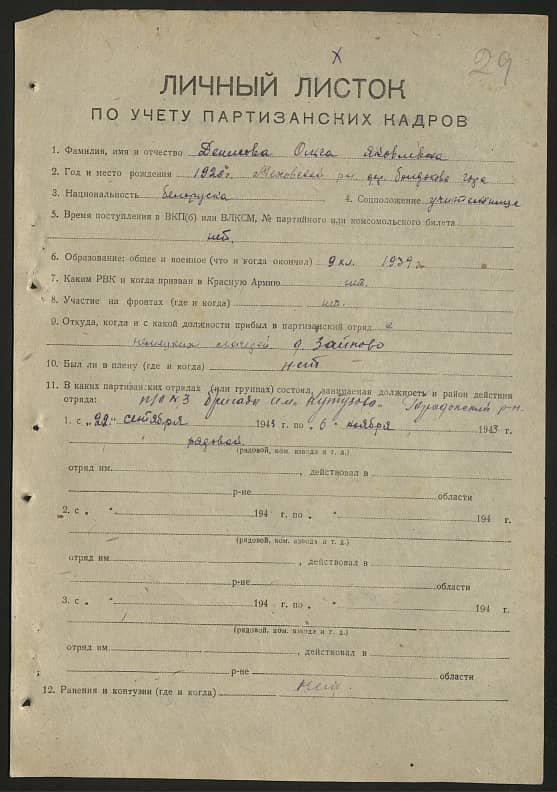 х
29
ЛИЧНЫЙ ЛИСТОК
ПО УЧЕТУ ПАРТИЗАНСКИХ КАДРОВ
1. Фамилия, имя и отчество Денисова Ольга Яковлевна
2. Год и место рождения 1920 г. Меховский р-н дер.
3. Национальность белоруска 4. Соцположение учительница
5. Время поступления в ВКП(б) или ВЛКСМ, № партийного или комсомольского билета
нет.
6. Образование: общее и военное (что и когда окончил) 9 кл. 1939 г.
7. Каким РВК и когда призван в Красную Армию нет.
8. Участие на фронтах (где и когда) нет.
9. Откуда, когда и с какой должности прибыл в партизанский отряд с
немецких д. Зайково
10. Был ли в плену (где и когда) нет
11. В каких партизанских отрядах (или группах) состоял, занимаемая должность и район действия
отряда: п/о №3 бригады им. Кутузова. Городокский р-н.
1. с „22" сентября 1943 г. по „6" ноября 1943 г.
рядовой.
(рядовой, ком. взвода и т. д.)
отряд им. , действовал в
р-не области
2. с „ " 194 г. по „ " 194 г.
(рядовой, ком. взвода и т. д.)
отряд им. , действовал в
р-не области
3. с „ " 194 г. по „ " 194 г.
(рядовой, ком. взвода и т. д.)
отряд им. , действовал в
р-не области
12. Ранения и контузии (где и когда) нет.